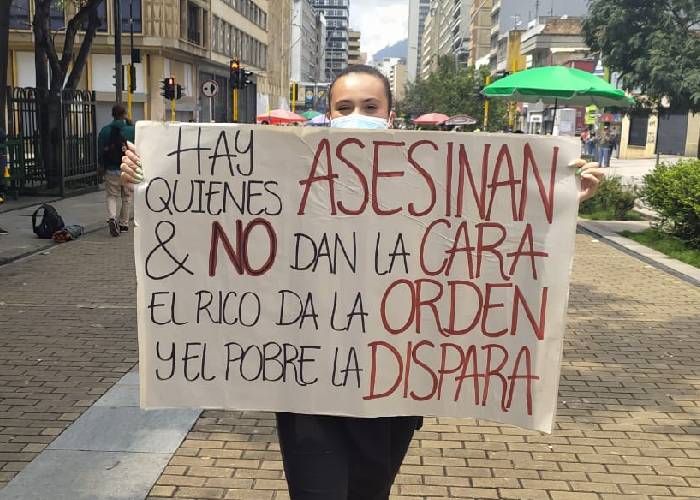 HAY QUIENES ASESINAN
& NO DAN LA CARA
EL RICO DA LA ORDEN
Y EL POBRE LA DISPARA